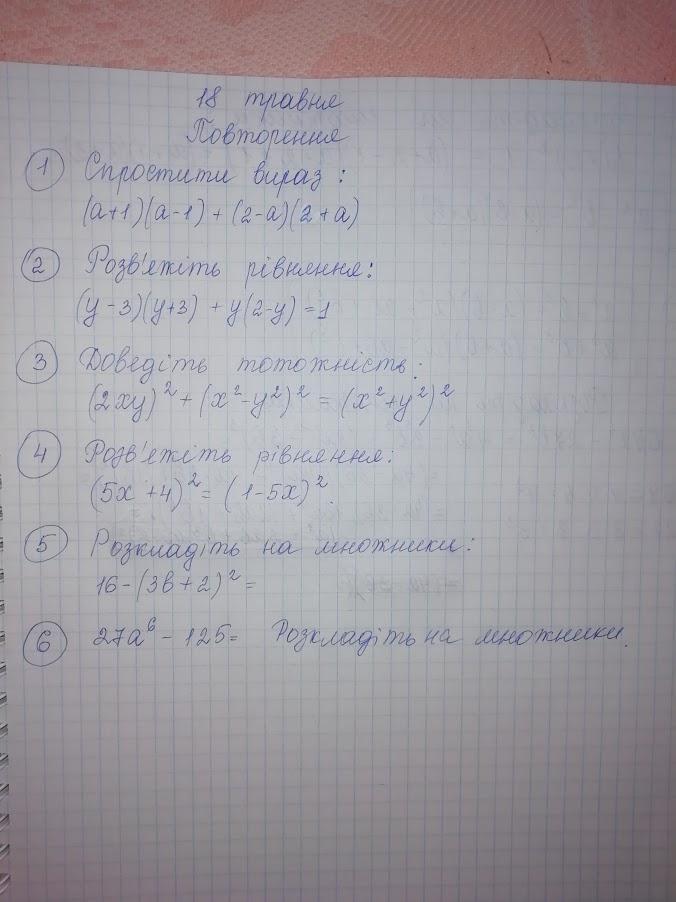 18 травня
Повторення
1 Спростити вираз:
(a+1)(a-1) + (2-a)(2+a)
2 Розв'яжіть рівняння:
(y-3)(y+3) + y(2-y) = 1
3 Доведіть тотожність:
(2xy)² + (x²-y²)² = (x²+y²)²
4 Розв'яжіть рівняння:
(5x+4)² = (1-5x)².
5 Розкладіть на множники:
16-(3b+2)² =
6 27a⁶ - 125 = Розкладіть на множники.